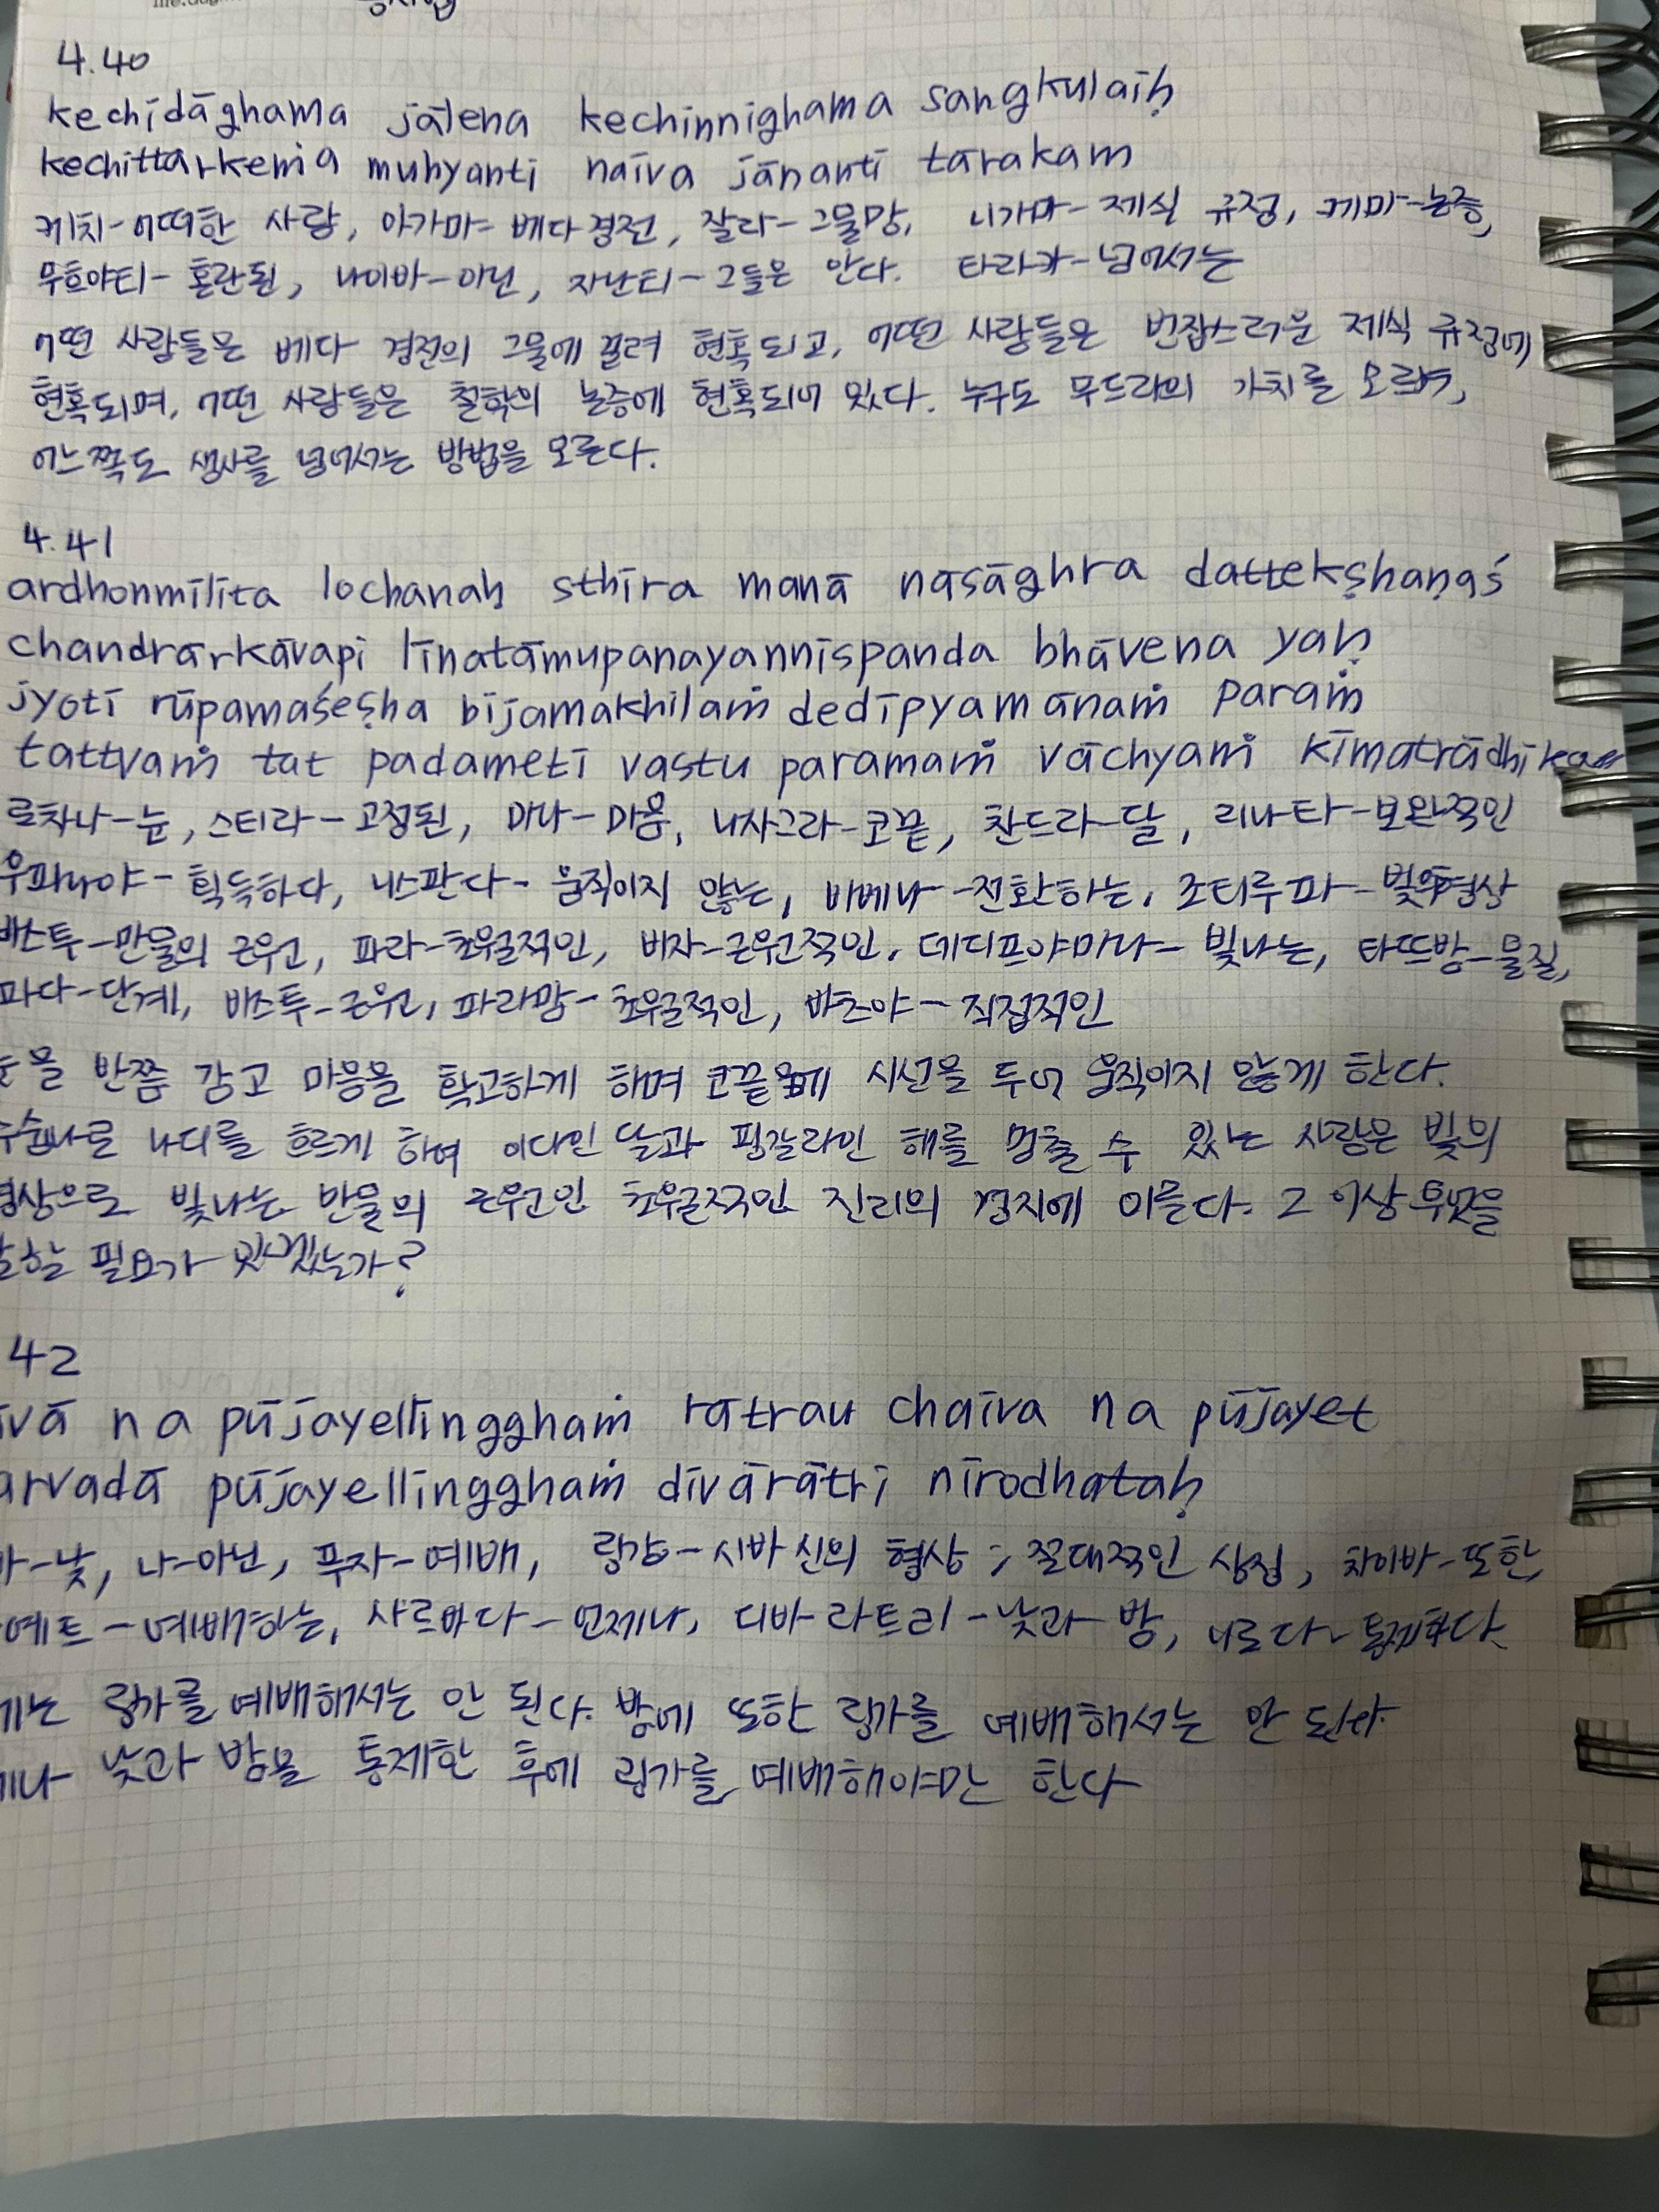 4.40
kechidāghama jālena kechinnighama sangkulaiḥ
kechittarkeṇa muhyanti naiva jānanti tārakam
케치-어떠한 사람, 아가마-베다경전, 잘라-그물망, 니가마-제식 규정, 케마-논증,
무흐야티-혼란된, 나이바-아닌, 자난티-그들은 안다. 타라카-넘어서는
어떤 사람들은 베다 경전의 그물에 걸려 현혹되고, 어떤 사람들은 번잡스러운 제식 규정에
현혹되며, 어떤 사람들은 철학의 논증에 현혹되어 있다. 누구도 무드라의 가치를 모르며,
어느쪽도 생사를 넘어서는 방법을 모른다.
4.41
ardhonmīlita lochanaḥ sthira manā nāsāghra dattekṣhaṇaś
chandrārkāvapi līnatāmupanayannispanda bhāvena yaḥ
jyoti rūpamaśeṣha bījamakhilaṁ dedīpyamānaṁ paraṁ
tattvaṁ tat padameti vastu paramaṁ vāchyaṁ kimatrādhikam
로차나-눈, 스티라-고정된, 마나-마음, 나사그라-코끝, 찬드라-달, 리나타-보완적인
우파나야-획득하다, 니스판다-움직이지 않는, 바베나-전환하는, 조티루파-빛의형상
바스투-만물의 근원, 파라-초월적인, 비자-근원적인, 데디프야마나-빛나는, 타뜨방-물질,
파다-단계, 바스투-근원, 파라맘-초월적인, 바츠야-직접적인
눈을 반쯤 감고 마음을 확고하게 하며 코끝에 시선을 두어 움직이지 않게 한다.
나디를 흐르게 하여 이다인 달과 핑갈라인 해를 멈출 수 있는 사람은 빛의
형상으로 빛나는 만물의 근원인 초월적인 진리의 경지에 이른다. 그 이상 무엇을
말할 필요가 있겠는가?
42
ivā na pūjayellinggghaṁ rātrau chaiva na pūjayet
arvadā pūjayellinggghaṁ divārātri nirodhataḥ
바-낮, 나-아닌, 푸자-예배, 링감-시바 신의 형상; 절대적인 상징, 차이바-또한,
예트-예배하는, 사르바다-언제나, 디바라트리-낮과 밤, 니로다-통제하다
에는 링가를 예배해서는 안 된다. 밤에 또한 링가를 예배해서는 안 된다.
제나 낮과 밤을 통제한 후에 링가를 예배해야만 한다